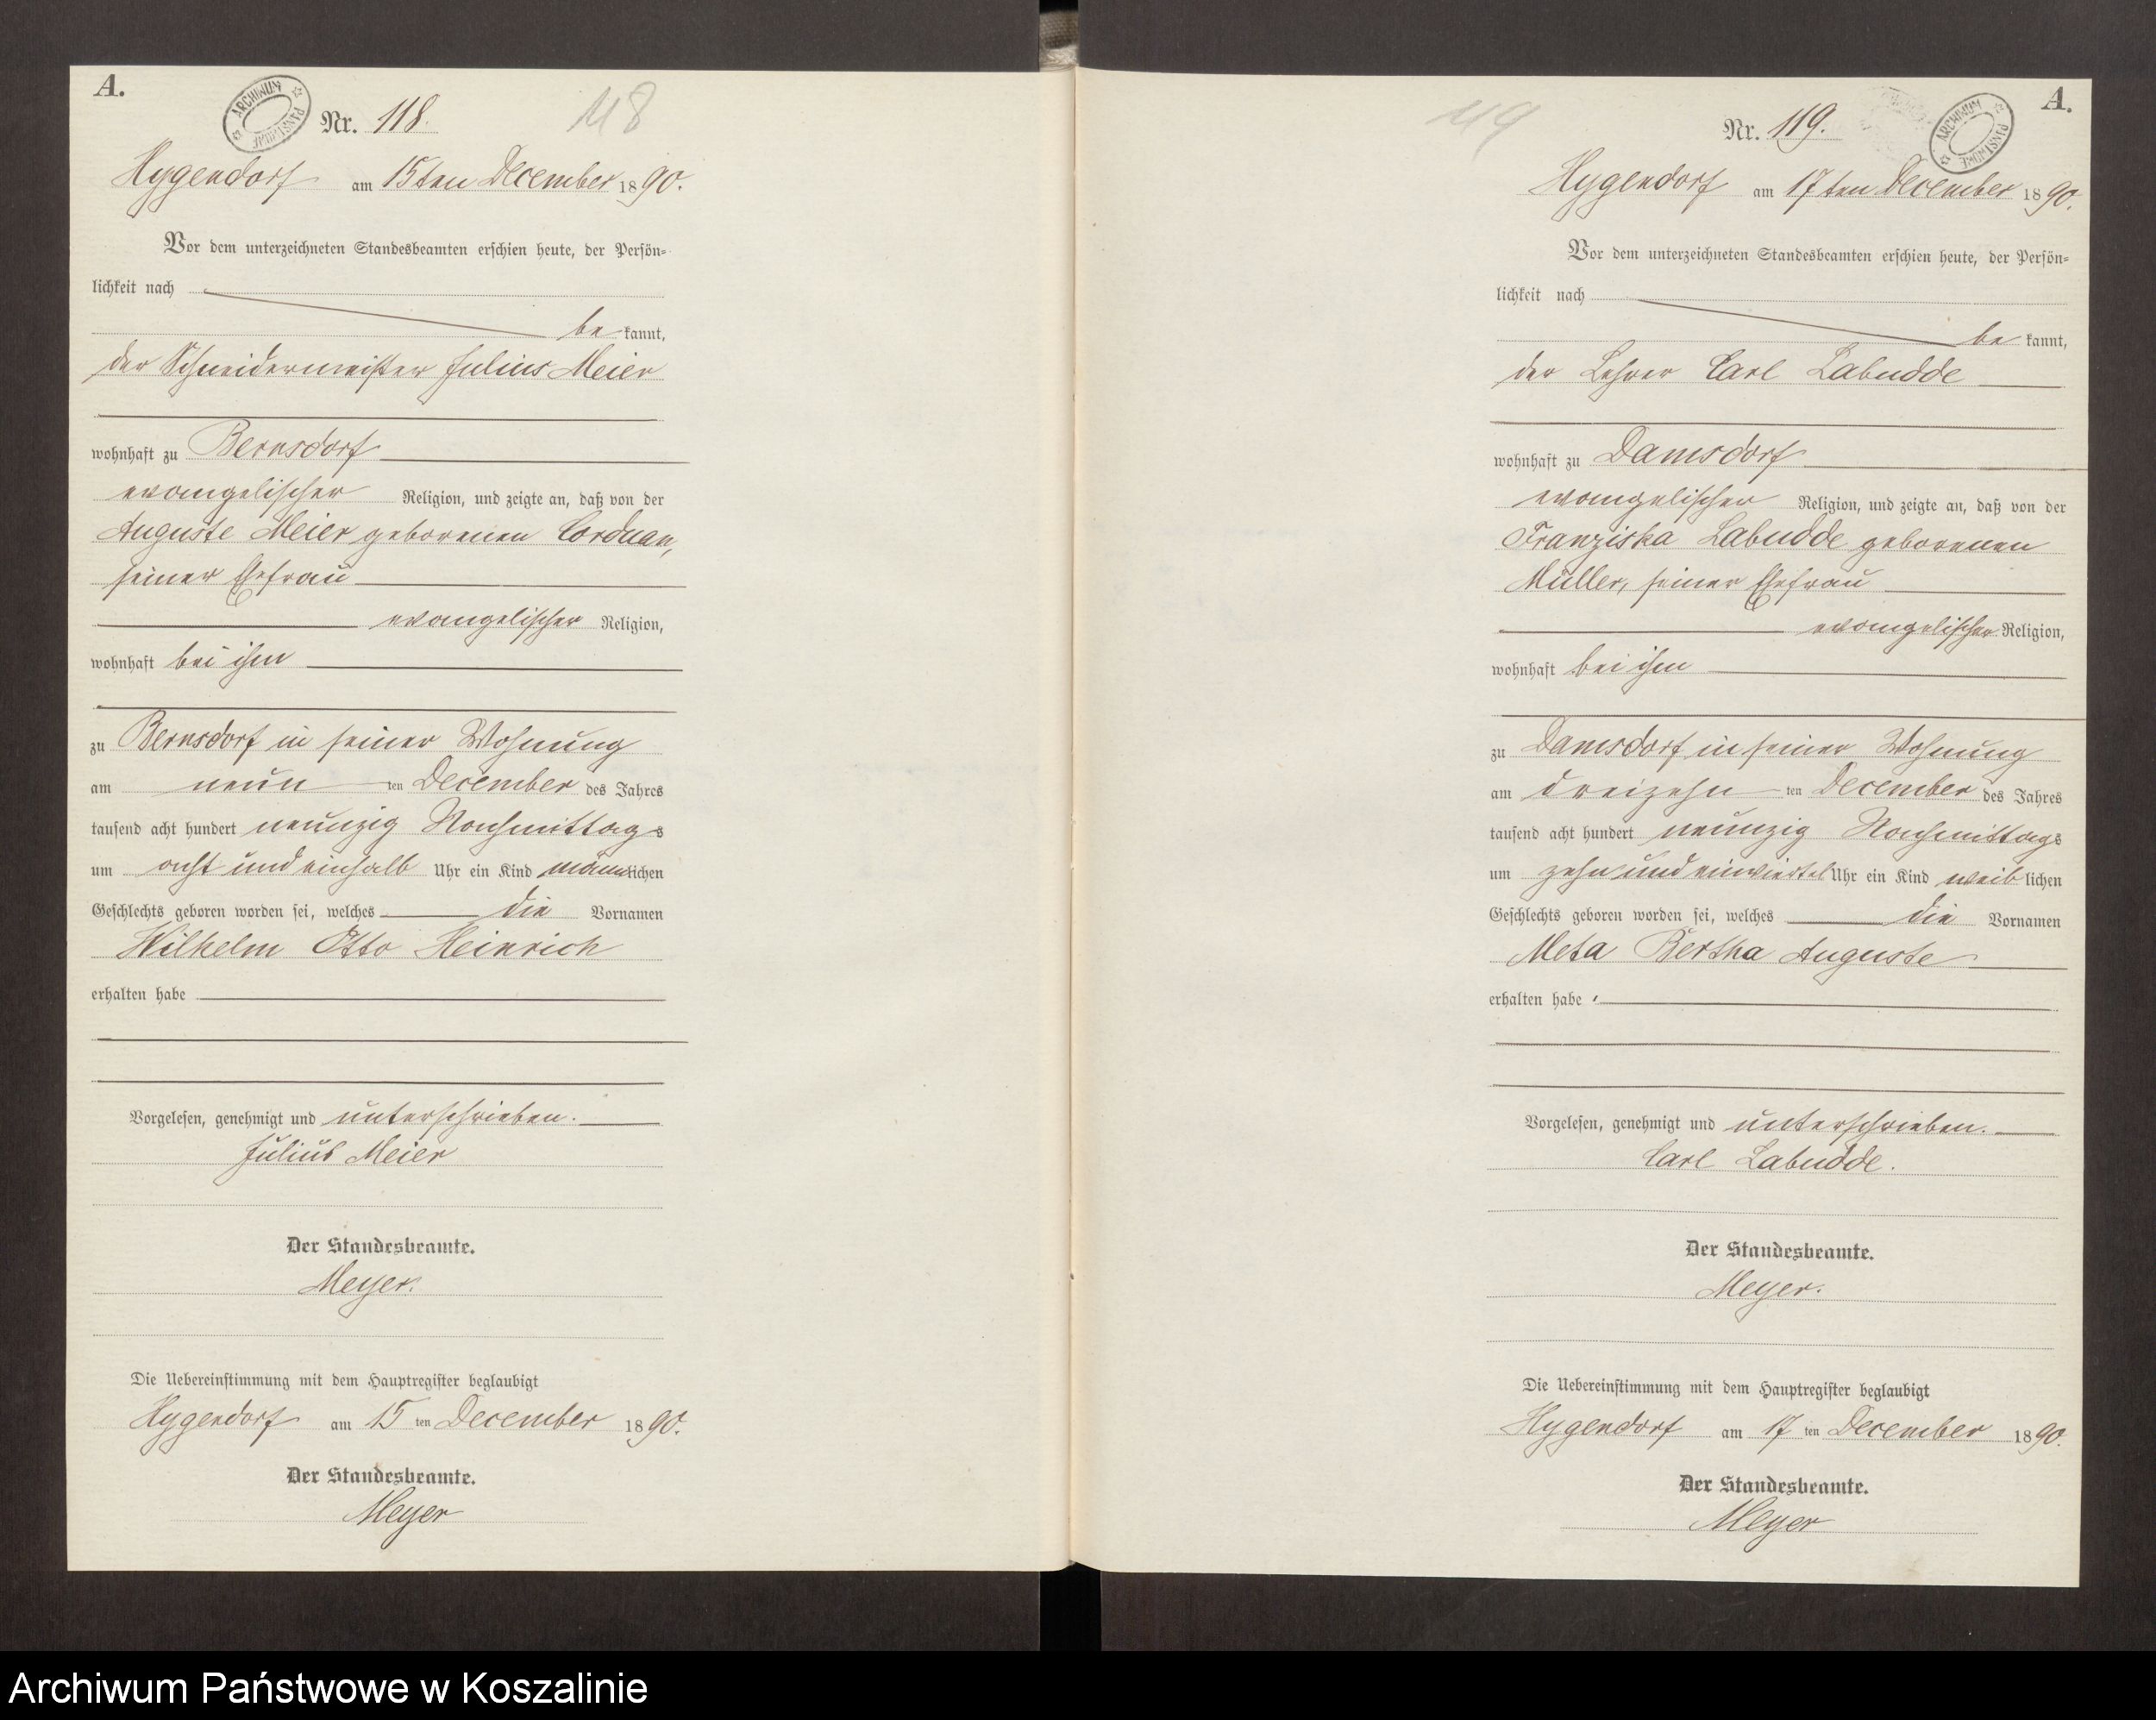 A.
ARCHIWUM PAŃSTWOWE
Nr. 118.
118
Hygendorf am 15ten December 1890.
Vor dem unterzeichneten Standesbeamten erschien heute, der Persön=
lichkeit nach
be kannt,
der Schneidermeister Julius Meier
wohnhaft zu Bernsdorf
evangelischer Religion, und zeigte an, daß von der
Auguste Meier geborenen Corduan,
seiner Ehefrau
evangelischer Religion,
wohnhaft bei ihm
zu Bernsdorf in seiner Wohnung
am neun ten December des Jahres
tausend acht hundert neunzig Nachmittags
um acht und einhalb Uhr ein Kind männlichen
Geschlechts geboren worden sei, welches die Vornamen
Wilhelm Otto Heinrich
erhalten habe
Vorgelesen, genehmigt und unterschrieben.
Julius Meier
Der Standesbeamte.
Meyer.
Die Uebereinstimmung mit dem Hauptregister beglaubigt
Hygendorf am 15 ten December 1890.
Der Standesbeamte.
Meyer
A.
ARCHIWUM PAŃSTWOWE
Nr. 119.
119
Hygendorf am 17ten December 1890.
Vor dem unterzeichneten Standesbeamten erschien heute, der Persön=
lichkeit nach
be kannt,
der Lehrer Carl Labudde
wohnhaft zu Damsdorf
evangelischer Religion, und zeigte an, daß von der
Franziska Labudde geborenen
Müller, seiner Ehefrau
evangelischer Religion,
wohnhaft bei ihm
zu Damsdorf in seiner Wohnung
am dreizehn ten December des Jahres
tausend acht hundert neunzig Nachmittags
um zehn und einviertel Uhr ein Kind weiblichen
Geschlechts geboren worden sei, welches die Vornamen
Meta Bertha Auguste
erhalten habe
Vorgelesen, genehmigt und unterschrieben.
Carl Labudde.
Der Standesbeamte.
Meyer.
Die Uebereinstimmung mit dem Hauptregister beglaubigt
Hygendorf am 17 ten December 1890.
Der Standesbeamte.
Meyer
Archiwum Państwowe w Koszalinie